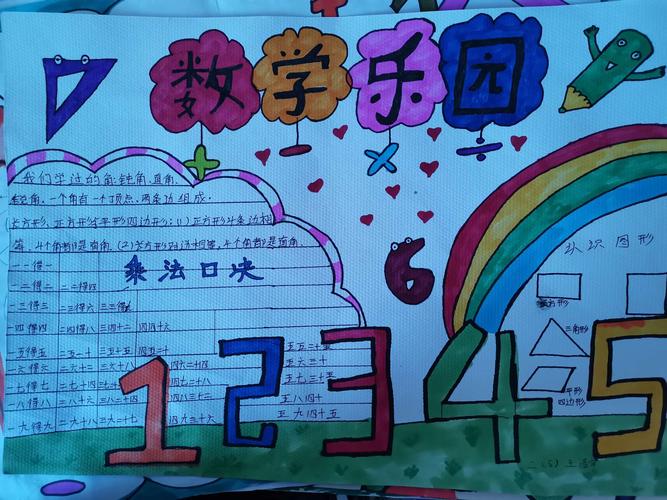 数学乐园
+ − × ÷
我们学过的角:钝角、直角、
锐角。一个角有一个顶点,两条边组成。
长方形、正方形、平行四边形:(1)正方形4条边相
等,4个角都是直角。(2)长方形对边相等,4个角都是直角。
乘法口决
一一得一
一二得二 二二得四
一三得三 二三得六 三三得九
一四得四 二四得八 三四十二 四四十六
一五得五 二五一十 三五十五 四五二十 五五二十五
一六得六 二六十二 三六十八 四六二十四 五六三十
一七得七 二七十四 四七二十八 五七三十五
一八得八 二八十六 三八二十四 五八四十
一九得九 二九十八 三九二十七 四九三十六 五九四十五
6
认识图形
三角形
平形
四边形
1 2 3 4 5